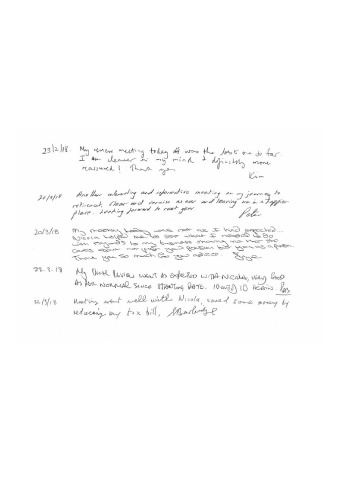 23/2/18. My review meeting today was the best one so far.
I am clearer in my mind + definitely more
reassured! Thank you
Kim
Another interesting and informative meeting on my journey to
retirement. Clear and concise as ever and leaving me in a happier
place. Looking forward to next year
20/3/18 My meeting today was not as I had expected.
Nicola helped me to see what I needed to do
with regards to my business
Thank you so much for your advice. Joye
22.3.18 My Review went as expected with Nicola, very good
as per normal since starting date. 10 out of 10 again.
12/3/18 Meeting went well with Nicola, saved some money by
reducing my tax bill,